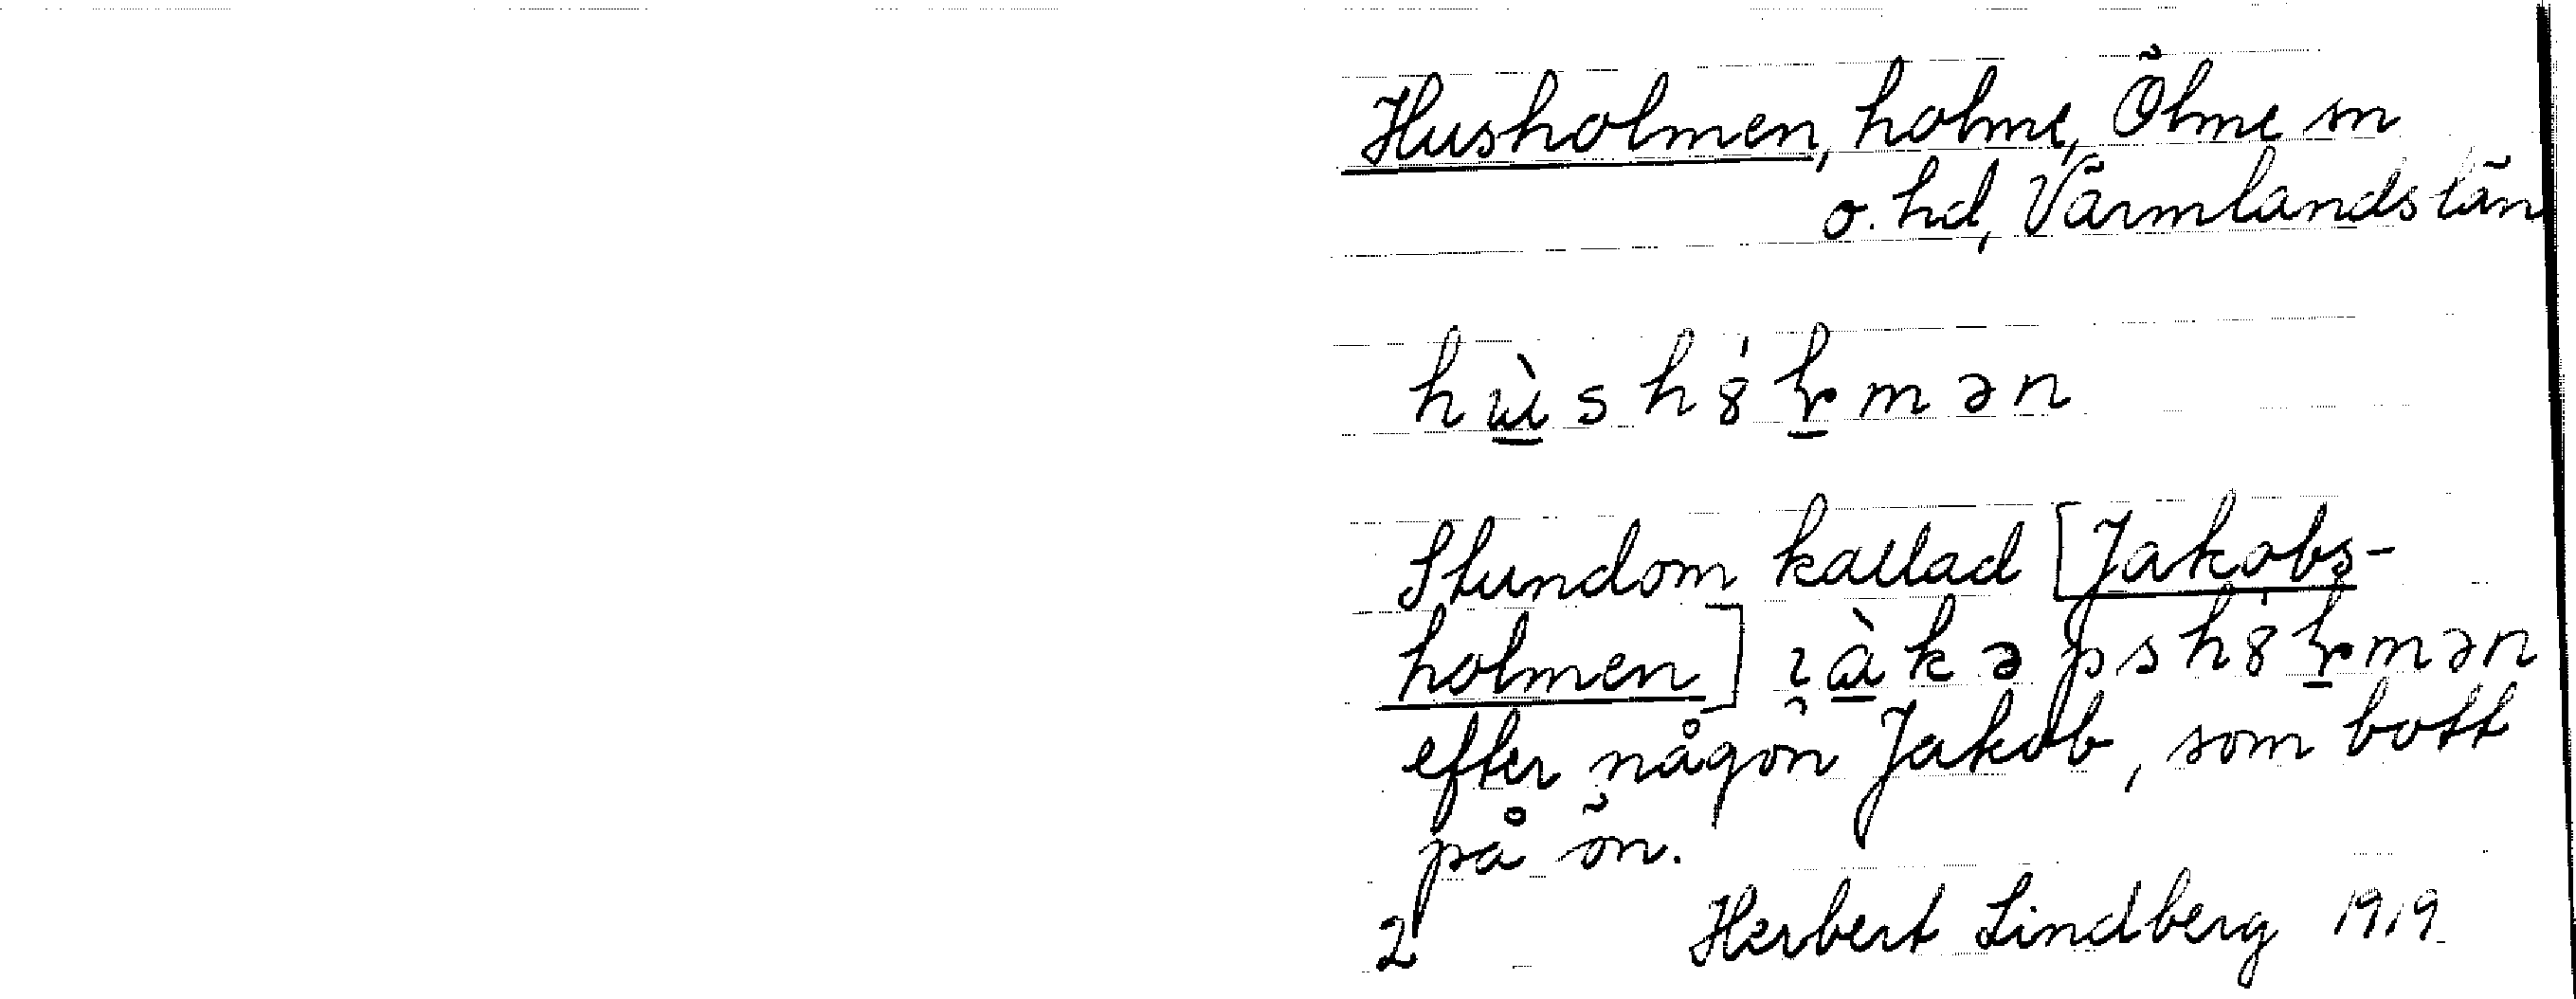 Husholmen, holme, Ölme sn
o. hd, Värmlands län
hɯ̀sh8̍ɫmən
Stundom kallad [Jakobs-
holmen] ɪ̯ɑ̀kəpsh8̍ɫmən
efter någon Jakob, som bott
på ön.
2 Herbert Lindberg 1919